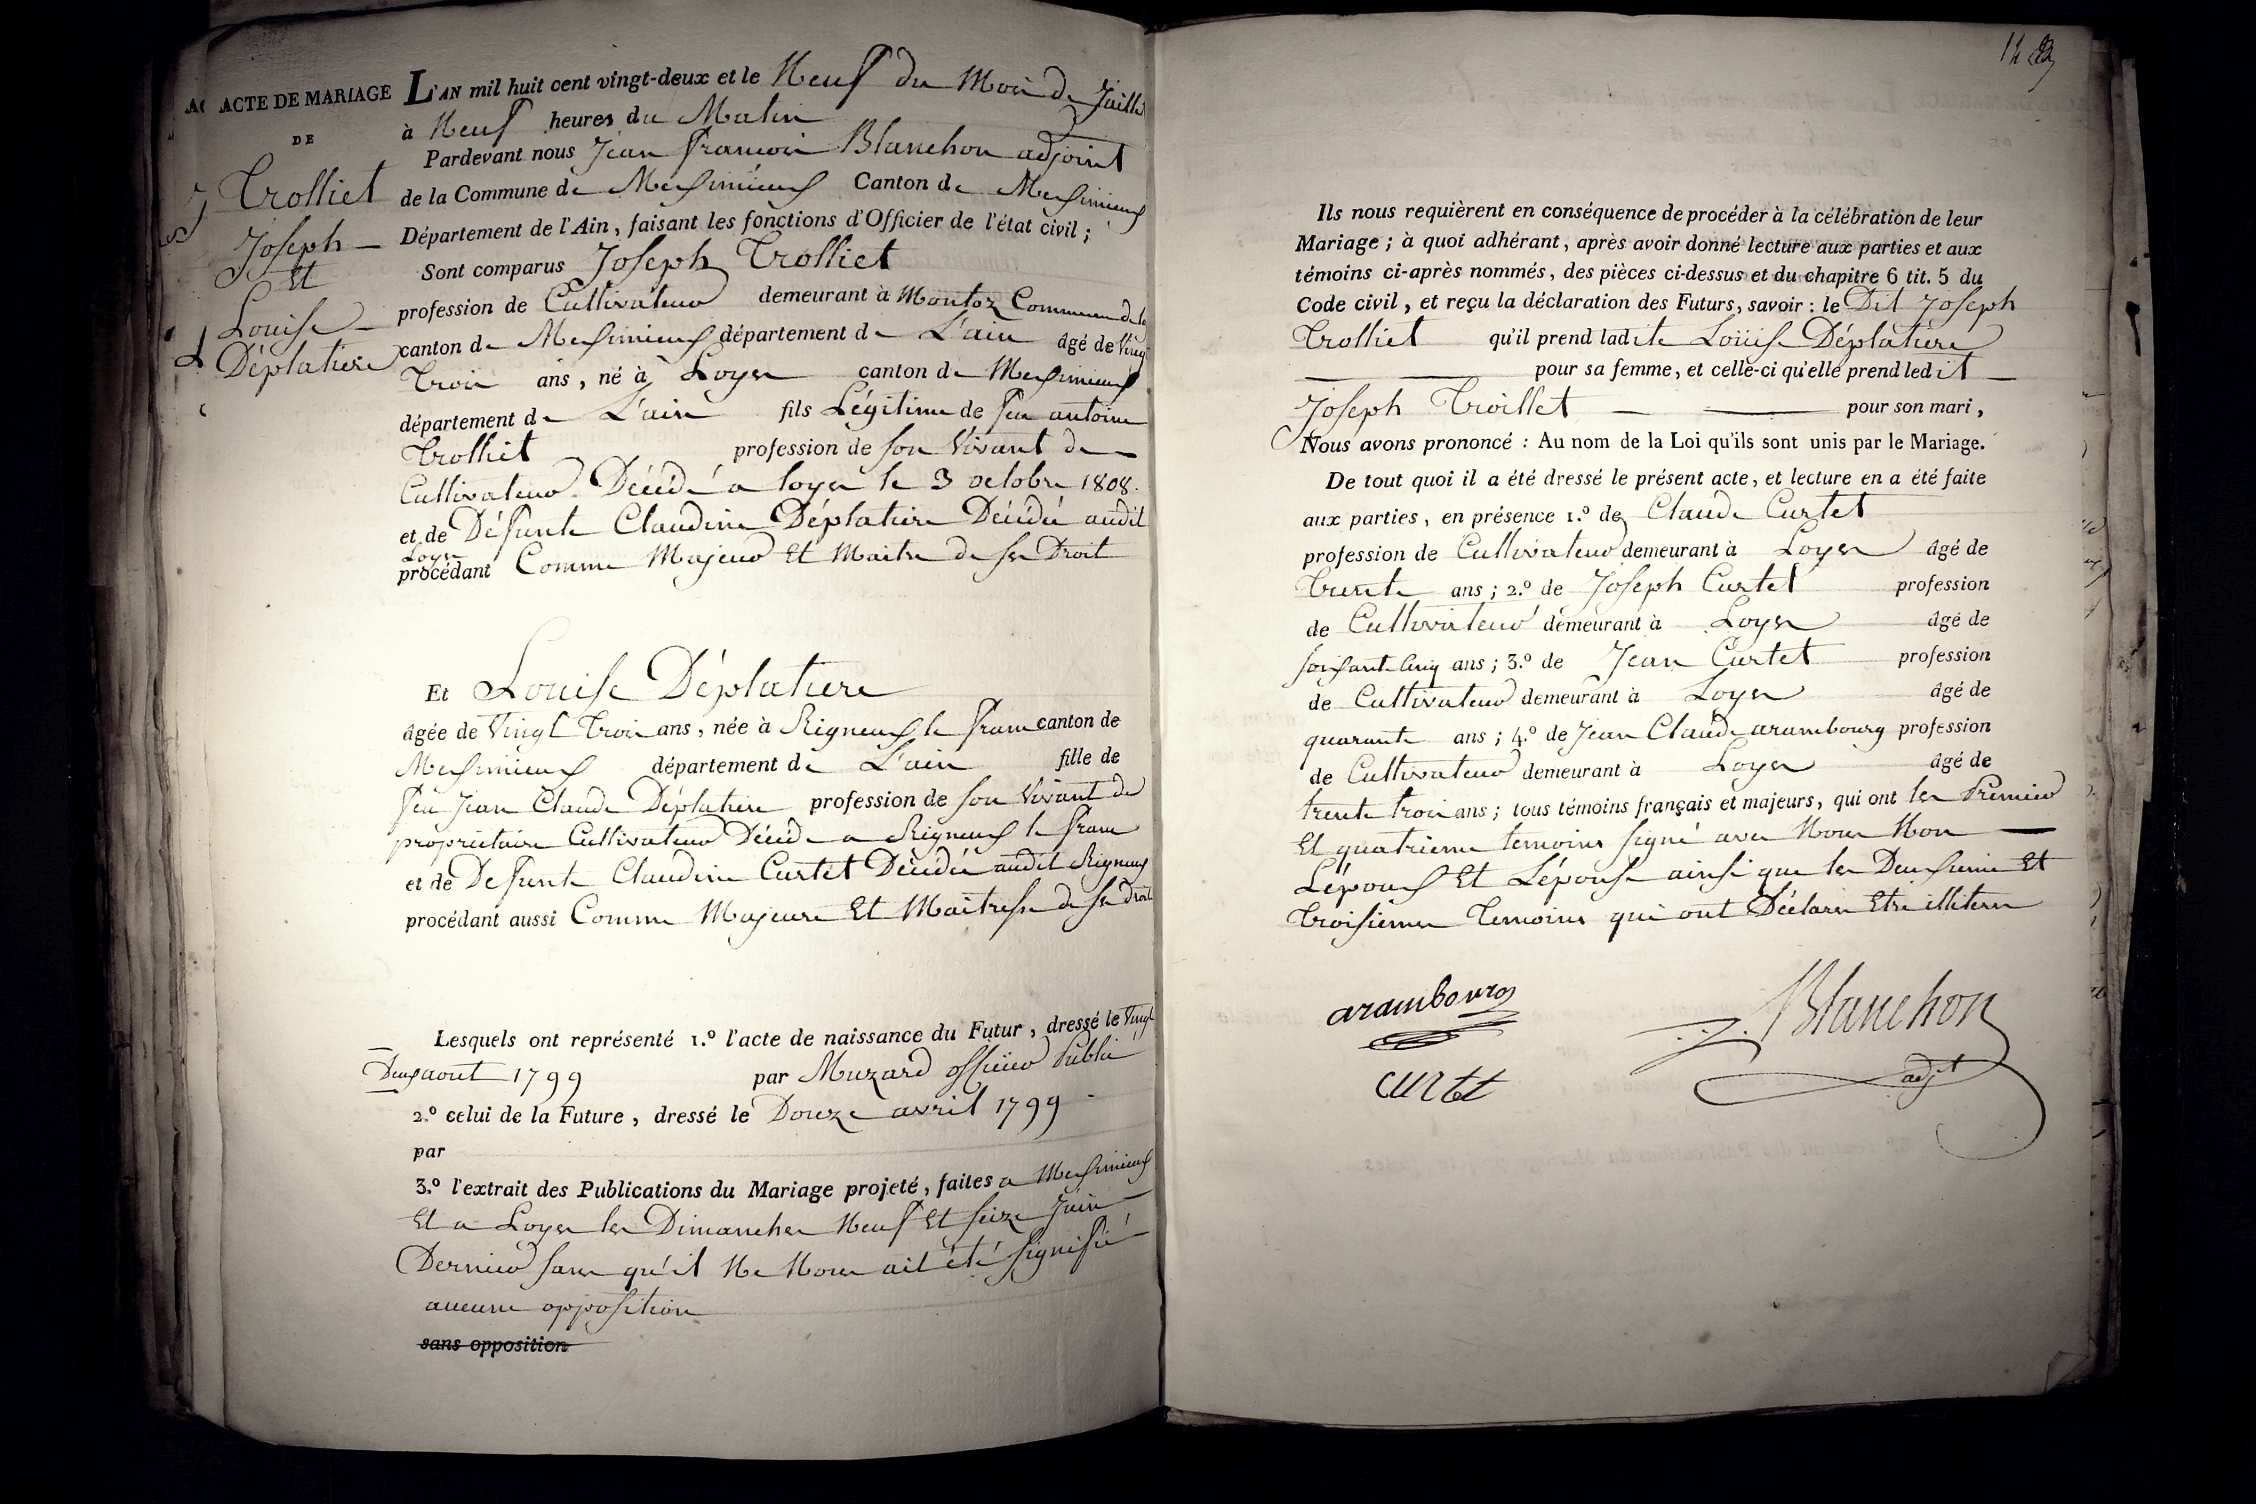 ACTE DE MARIAGE
DE
Trolliet
Joseph
Et
Louise
Déplatiere
L'AN mil huit cent vingt-deux et le Neuf du Mois de Juillet
à Neuf heures du Matin
Pardevant nous Jean françois Blanchon adjoint
de la Commune de Meximieux Canton de Meximieux
Département de l'Ain, faisant les fonctions d'Officier de l'état civil;
Sont comparus Joseph Trolliet
profession de Cultivateur demeurant à Montoz Commune de
canton de Meximieux département de L'ain âgé de Vingt
Trois ans, né à Loyes canton de Meximieux
département de L'ain fils Légitime de feu antoine
Trolliet profession de son Vivant de
Cultivateur Décédé a loyes le 3 octobre 1808.
et de Défunte Claudine Déplatiere Décédée audit
Loyes
procédant Comme Majeur Et Maitre de ses Droit
Et Louise Déplatiere
âgée de Vingt Trois ans, née à Rigneux le franc canton de
Meximieux département de L'ain fille de
feu Jean Claude Déplatiere profession de son Vivant de
propriétaire Cultivateur Décédé a Rigneux le franc
et de Defunte Claudine Curtet Décédée audit Rigneux
procédant aussi Comme Majeure Et Maitresse de ses Droit
Lesquels ont représenté 1.º l'acte de naissance du Futur, dressé le Vingt
Deux aout 1799 par Muzard officier Public
2.º celui de la Future, dressé le Douze avril 1799
par
3.º l'extrait des Publications du Mariage projeté, faites a Meximieux
Et a Loyes les Dimanches Neuf Et seize Juin
Dernier sans qu'il Ne Nous ait été signifié
aucune opposition
sans opposition
Ils nous requièrent en conséquence de procéder à la célébration de leur
Mariage; à quoi adhérant, après avoir donné lecture aux parties et aux
témoins ci-après nommés, des pièces ci-dessus et du chapitre 6 tit. 5 du
Code civil, et reçu la déclaration des Futurs, savoir: le Dit Joseph
Trolliet qu'il prend ladite Louise Déplatiere
pour sa femme, et celle-ci qu'elle prend ledit
Joseph Troillet pour son mari,
Nous avons prononcé: Au nom de la Loi qu'ils sont unis par le Mariage.
De tout quoi il a été dressé le présent acte, et lecture en a été faite
aux parties, en présence 1.º de Claude Curtet
profession de Cultivateur demeurant à Loyes âgé de
Trente ans; 2.º de Joseph Curtet profession
de Cultivateur demeurant à Loyes âgé de
soixante Cinq ans; 3.º de Jean Curtet profession
de Cultivateur demeurant à Loyes âgé de
quarante ans; 4.º de Jean Claude arambourg profession
de Cultivateur demeurant à Loyes âgé de
trente trois ans; tous témoins français et majeurs, qui ont les Premier
Et quatrieme temoins signé avec Nous Non
L'époux Et L'épouse ainsi que les Deuxieme Et
Troisiemes Temoins qui ont Déclarer Etre illiteres
arambourg
Blanchon
adjt
curtet